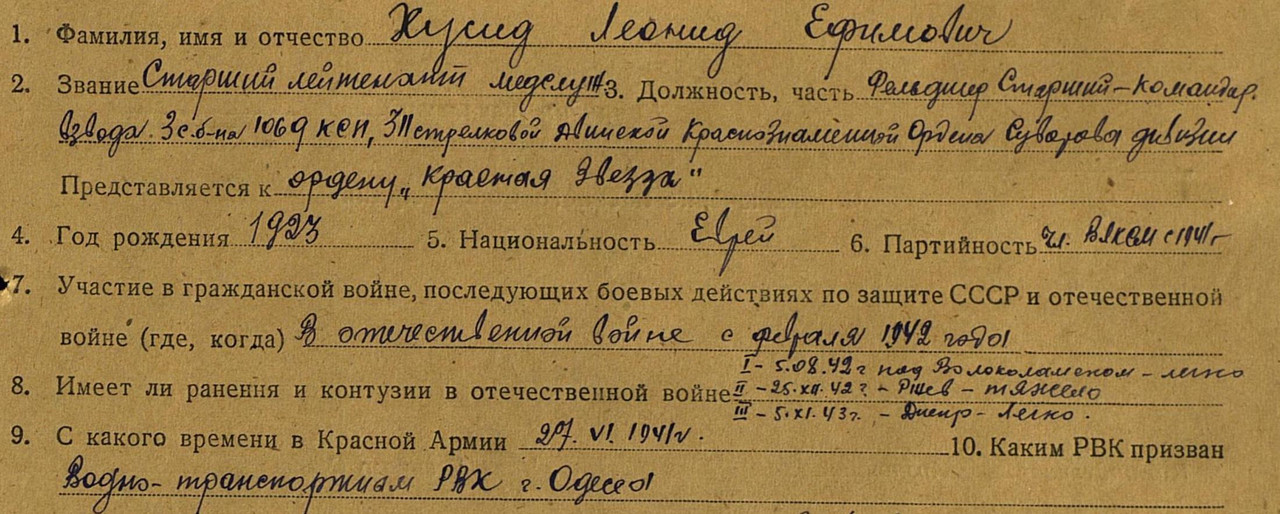 1. Фамилия, имя и отчество Хусид Леонид Ефимович
2. Звание Старший лейтенант медслуж 3. Должность, часть Фельдшер Старший - командир
взвода 3 с.б-на 1069 ксп, 311 стрелковой Двинской Краснознаменной Ордена Суворова дивизии
Представляется к ордену „Красная Звезда"
4. Год рождения 1923 5. Национальность Еврей 6. Партийность чл. ВЛКСМ с 1941 г
7. Участие в гражданской войне, последующих боевых действиях по защите СССР и отечественной
войне (где, когда) В отечественной войне с февраля 1942 года
I - 5.08.42 г под Волоколамском - легко
8. Имеет ли ранения и контузии в отечественной войне II - 25.XII.42 г. - Ржев - тяжело
III - 5.XI.43 г. - Днепр - Легко.
9. С какого времени в Красной Армии 27.VI.1941 г. 10. Каким РВК призван
Водно-транспортным РВК г. Одесса